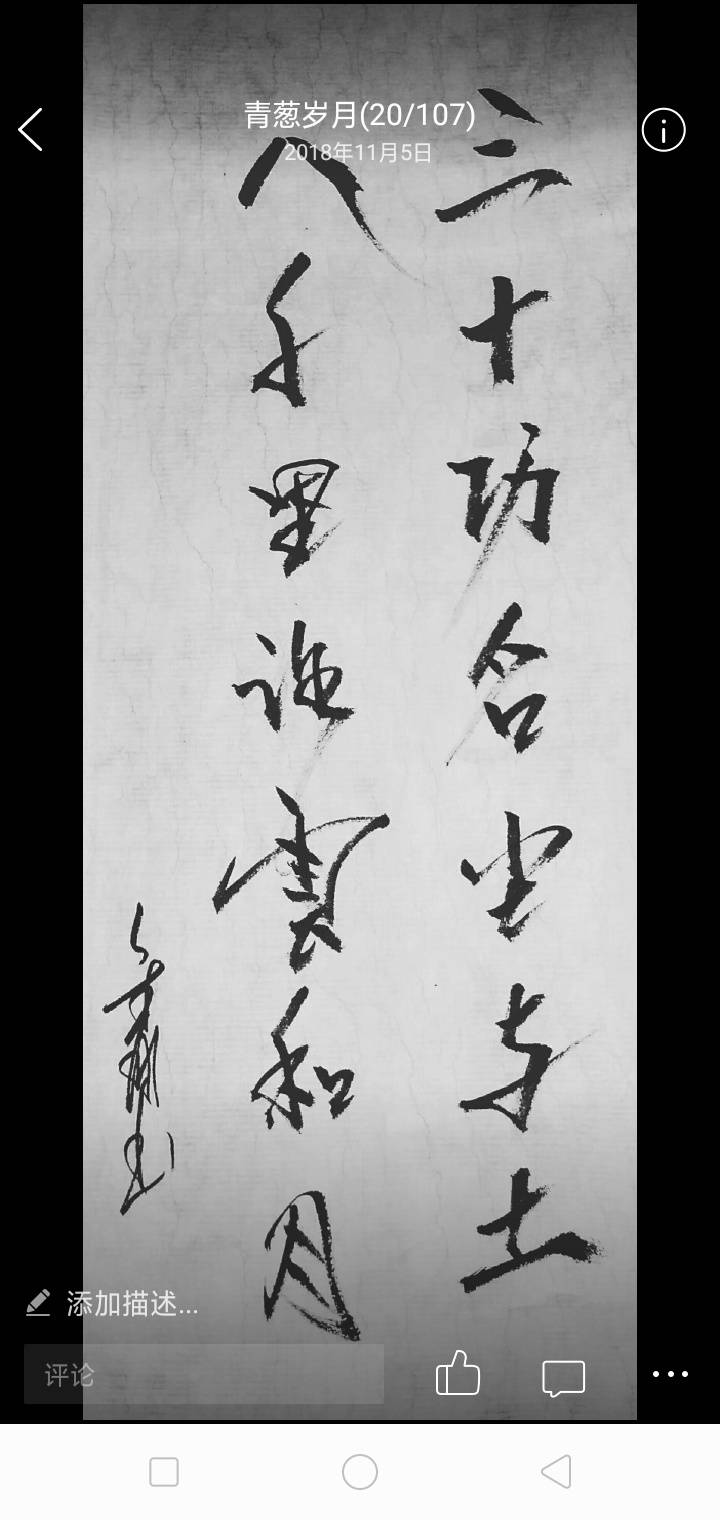 青葱岁月(20/107)
2018年11月5日
三十功名尘与土
八千里路雲和月
添加描述...
评论